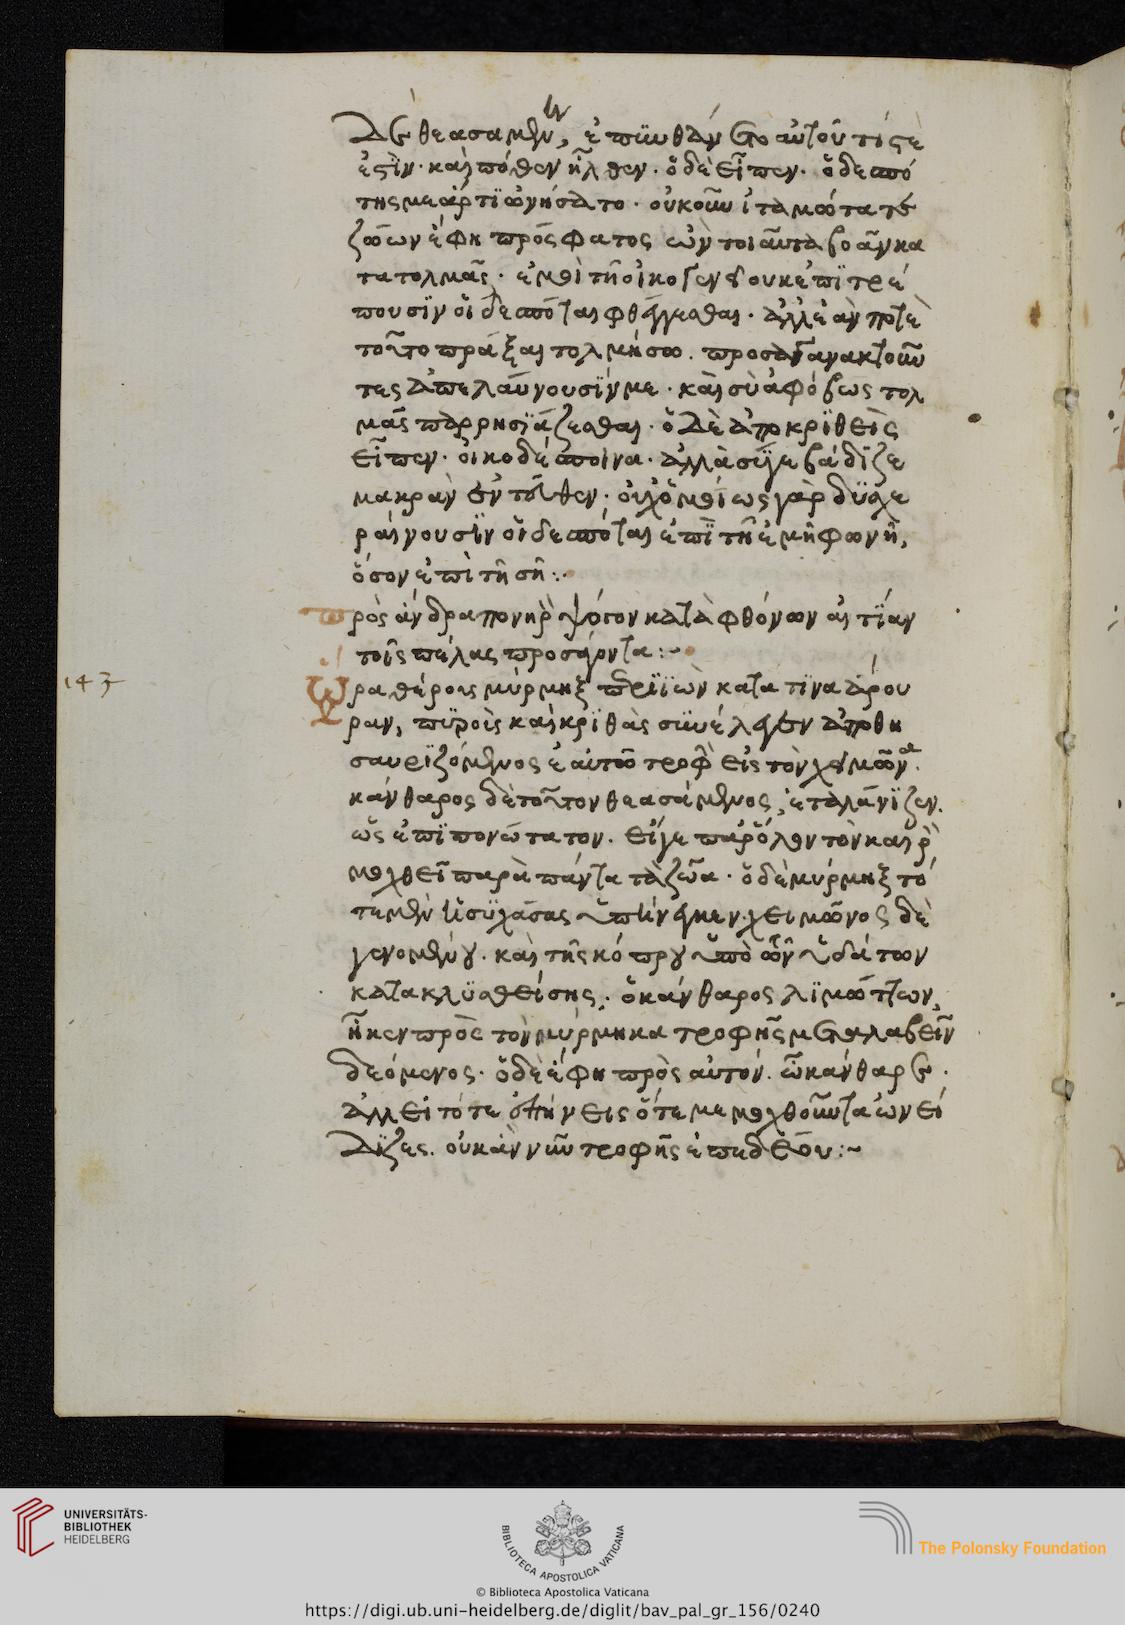 δὲ θεασαμένη, ἐπϋνθάνετο αὐτοῦ τίς ἐ
ἐςϊν· καὶ πόθεν ἦλθεν· ὁ δὲ εἶπεν· ὁ δεσπό
της με ἀρτϊωνήσατο· οὐκοῦν ἰταμώτατε
ζώων ἔφη πρόσφατος ὢν τοιαῦτα βοᾶν κα
τατολμᾶς· ἐμοὶ τῆ οἰκογενεῖ οὐκ ἐπϊτρέ
πουσϊν οἱ δεσπόται φθέγγεσθαι· ἀλλ' ἐάν ποτε
τοῦτο πρᾶξαι τολμήσω. προσαγανακτοῦν
τες ἀπελαύνουσϊν με· καὶ σὺ ἀφόβως τολ
μᾶς παρρησϊάζεσθαι· ὁ δὲ ἀποκρϊθεὶς
εἶπεν· οἰκοδέσποινα· ἀλλὰ σύγε βάδϊζε
μακρὰν ἐντεῦθεν· οὐχ ὁμοίως γὰρ δϋσχε
ραίνουσϊν οἱ δεσπόται ἐπϊ τῆ ἐμῆ φωνῆ,
ὅσον ἐπὶ τῆ σῆ:·
πρὸς ἄνδρα πονηρὸν ψόγον κατὰ φθόνων αἰτϊαν
τοῖς πέλας προσάγοντα:~
143
Ὥρα θέρους μύρμηξ περϊϊὼν κατα τϊνα ἄρου
ραν, πϋροὺς καὶ κρϊθὰς σϋνέλεγεν ἀποθη
σαυρϊζόμενος ἑαυτῶ τροφὴν εἰς τὸν χειμῶνα.
κάνθαρος δὲ τοῦτον θεασάμενος, ἐταλάνϊζεν.
ὡς ἐπϊπονώτατον. εἴγε παρ' ὅλον τὸν καιρὸν
μοχθεῖ παρὰ πάντα τὰ ζῶα· ὁ δὲ μύρμηξ τό
τε μὲν ἡσϋχάσας ὑπήνεγκεν. χειμῶνος δὲ
γενομένου. καὶ τῆς κόπρου ὑπὸ τῶν ὑδάτων
κατακλϋσθείσης. ὁ κάνθαρος λϊμώττων,
ἧκεν πρὸς τὸν μύρμηκα τροφῆς μεταλαβεῖν
δεόμενος. ὁ δὲ ἔφη πρὸς αὐτόν. ὦ κάνθαρε.
ἀλλ' εἰ τότε ἐπόνεις ὅτε με μοχθοῦντα ὠνεί
δϊζες. οὐκ ἂν νῦν τροφῆς ἐπεδέου:~
UNIVERSITÄTS-
BIBLIOTHEK
HEIDELBERG
BIBLIOTECA APOSTOLICA VATICANA
The Polonsky Foundation
© Biblioteca Apostolica Vaticana
https://digi.ub.uni-heidelberg.de/diglit/bav_pal_gr_156/0240